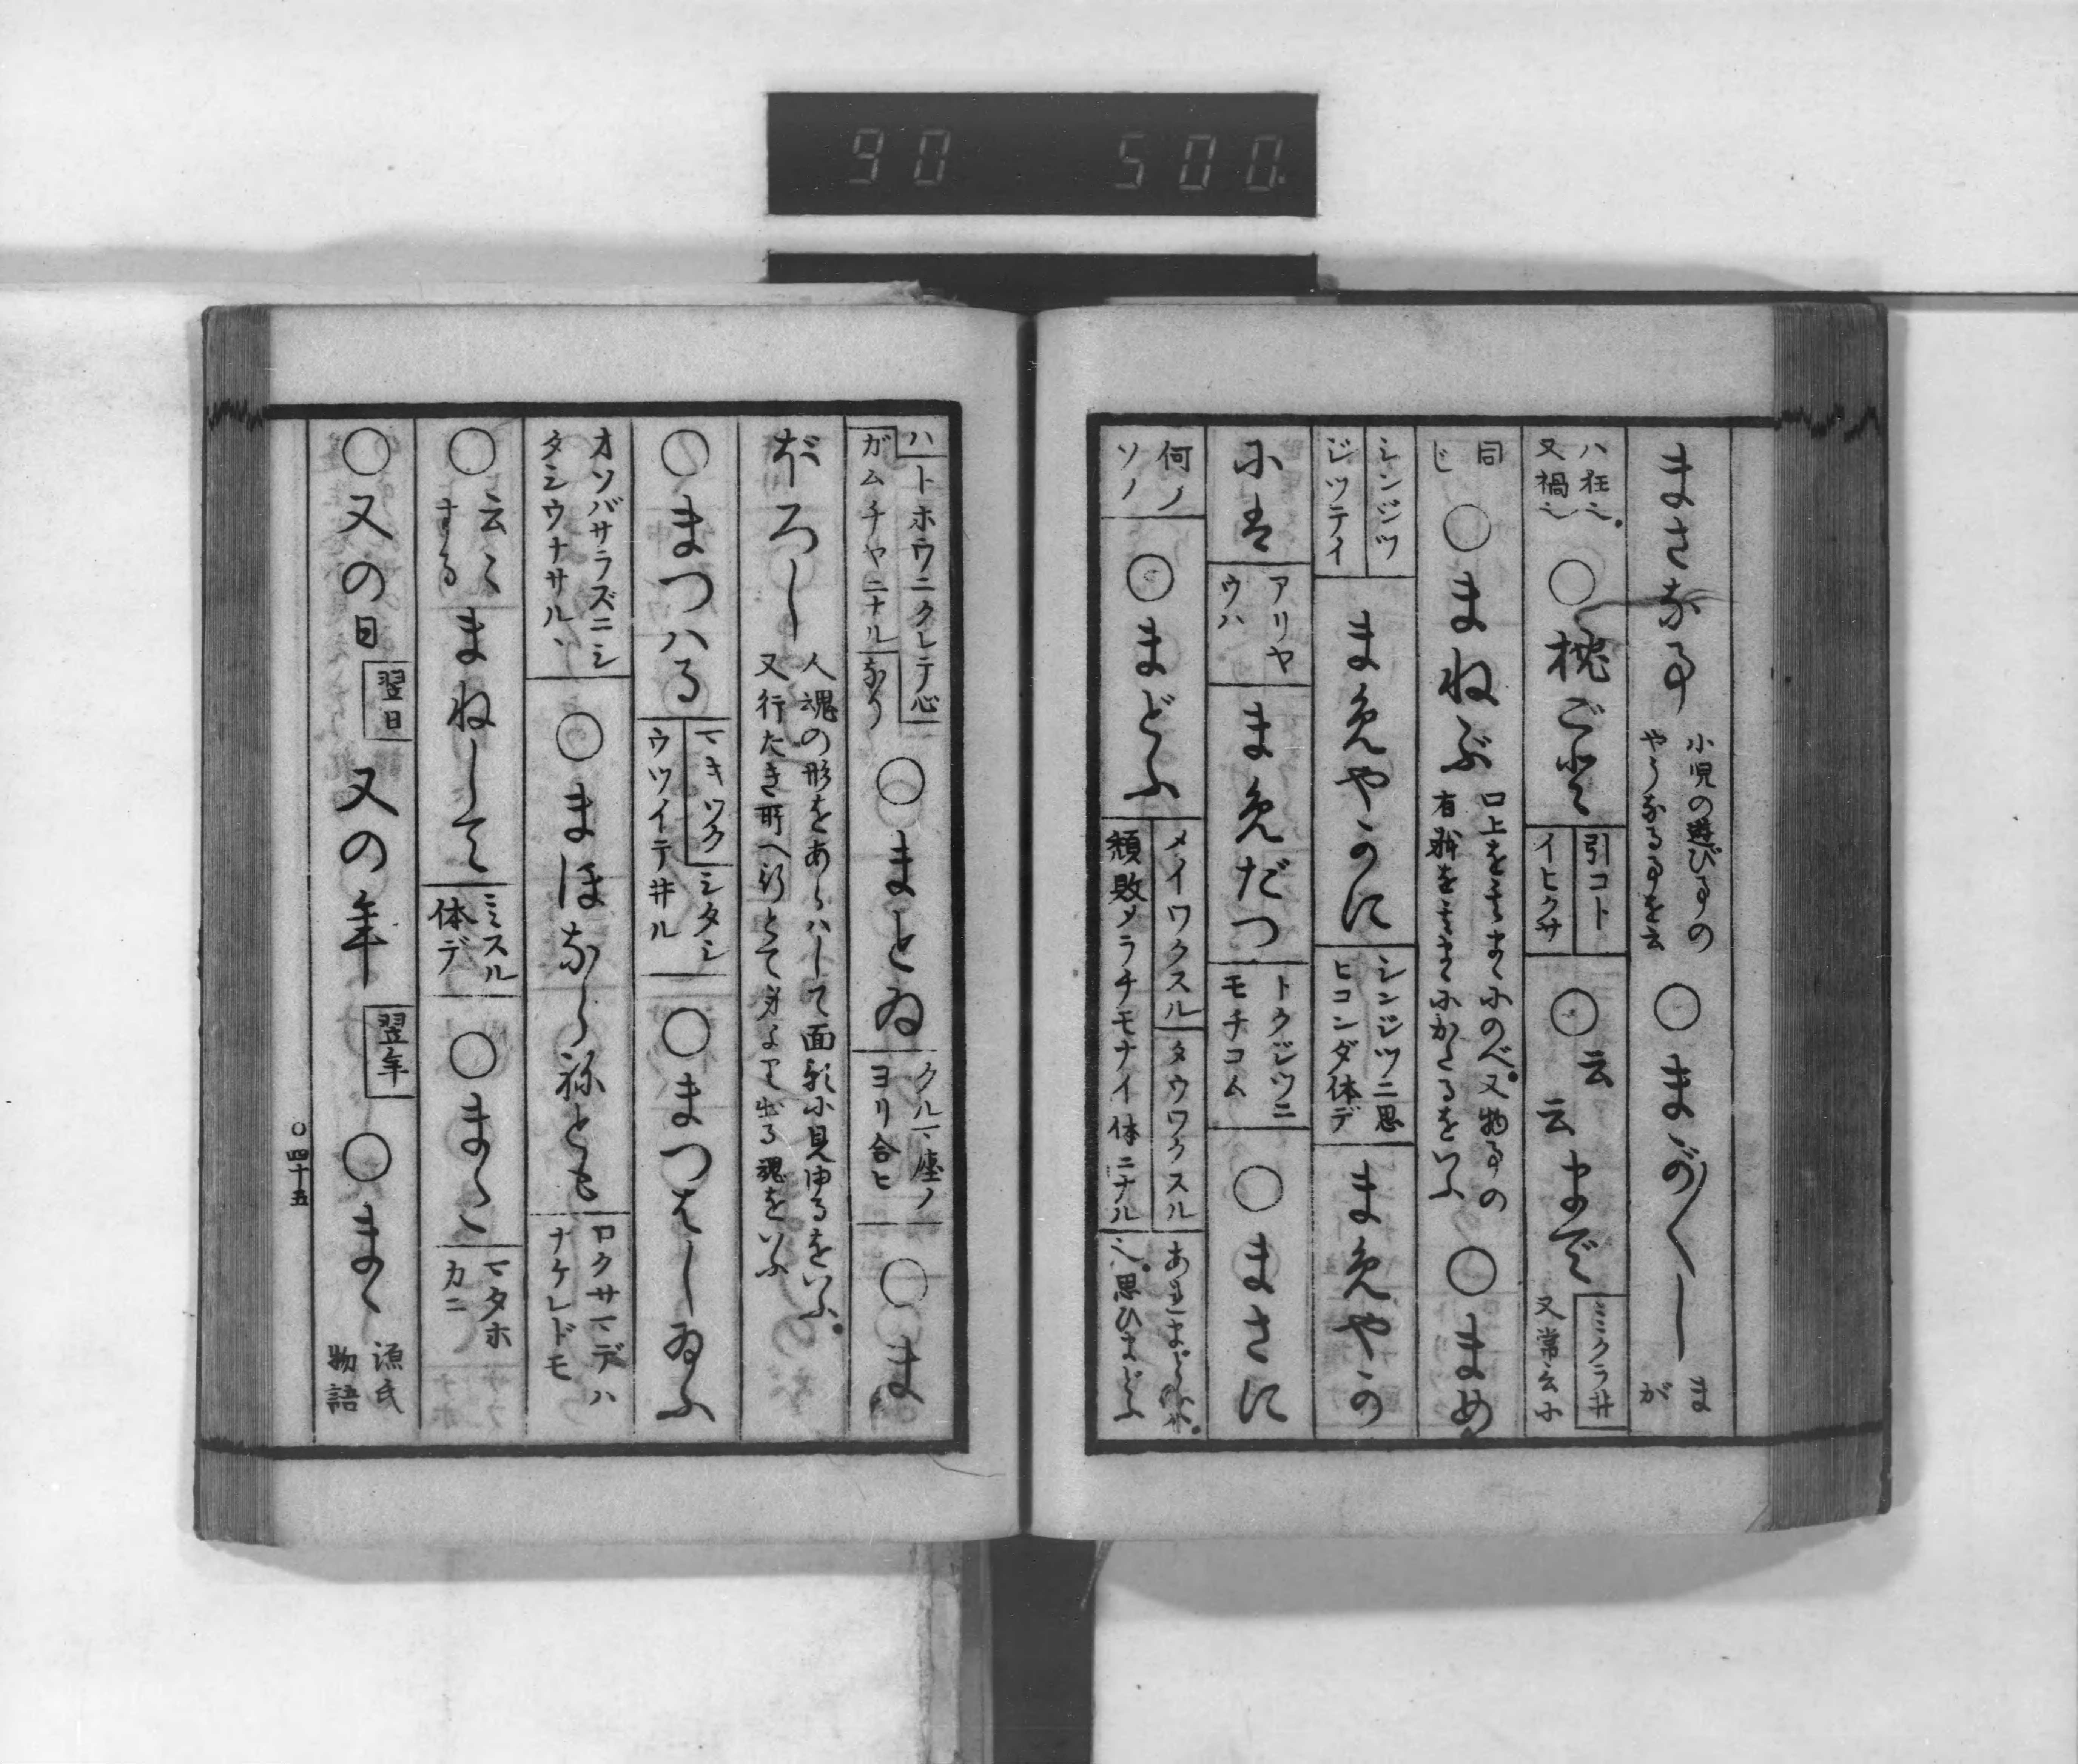 90 500.
まさなき事 小児の遊び事の
やうなる事を云 ○まが〱し まが
ハ枉也。
又禍也 ○枕ごと 引コト
イヒクサ ○云云まで ミクラ井 又常云ふ
同じ ○まねぶ 口上を云まゝにのべ。又物事の
有状を云まゝにかたるをいふ ○まめ
シンジツ
ジツテイ まめやかに シンジツニ思
ヒコンダ体デ まめやか
には アリヤ
ウハ まめだつ トクジツニ
モチコム ○まさに
何ノ
ソノ ○まどふ メイワクスル タウワクスル
頽敗メラチモナイ体ニナル
也。思ひまどふ
ハトホウニクレテ心
ガムチヤニナルなり ○まとゐ クルマ座ノ
ヨリ合ヒ ○ま
ぼろし 人魂の形をあらハして面影に見ゆるをいふ。
又行たき所へ行とて身より出る魂をいふ
○まつハる マキツク シタシ
ウツイテ井ル ○まつはしゐふ
オソバサラズニシ
タシウナサルヽ ○まほならねとも ロクサマデハ
ナケレドモ
○云々する まねして ミヽスル
体デ ○まゝ マタホ
カニ
○又の日 翌日 又の年 翌年 ○まゝ 源氏
物語
○四十五